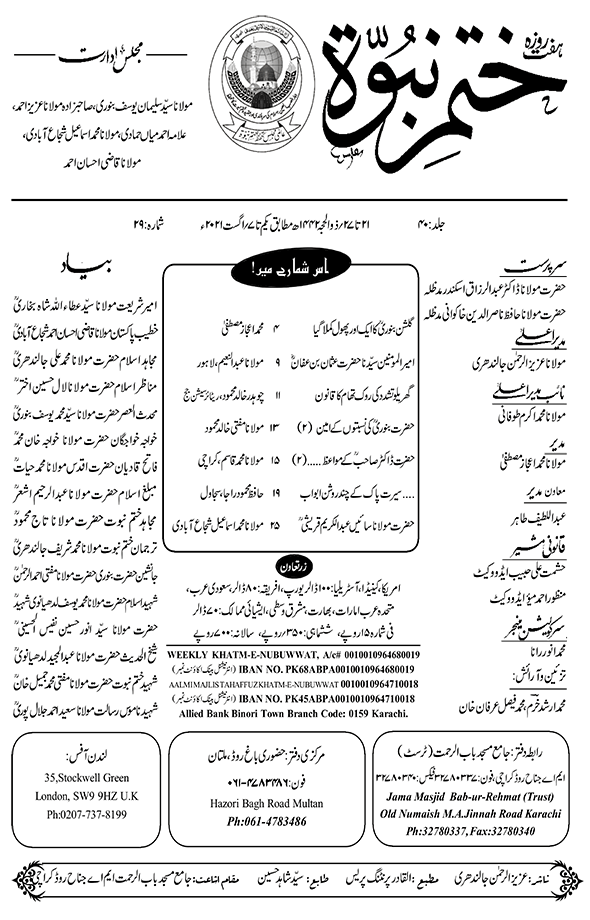 ہفت روزہ
ختم نبوۃ
مجلس ادارت
مولانا سیّد سلیمان یوسف بنوری، صاحبزادہ مولانا عزیز احمد،
علامہ احمد میاں حمادی، مولانا محمد اسماعیل شجاع آبادی،
مولانا قاضی احسان احمد
جلد: ۴۰
۲۱ تا ۲۷؍ذوالحجہ ۱۴۴۲ھ مطابق یکم تا ۷؍اگست ۲۰۲۱ء
شمارہ: ۲۹
سرپرست
حضرت مولانا ڈاکٹر عبدالرزاق اسکندر مدظلہ
حضرت مولانا حافظ ناصر الدین خاکوانی مدظلہ
مدیر اعلیٰ
مولانا عزیز الرحمٰن جالندھری
نائب مدیر اعلیٰ
مولانا محمد اکرم طوفانی
مدیر
مولانا محمد اعجاز مصطفیٰ
معاون مدیر
عبداللطیف طاہر
قانونی مشیر
حشمت علی حبیب ایڈووکیٹ
منظور احمد میؤ ایڈووکیٹ
سرکولیشن منیجر
محمد انور رانا
تزئین و آرائش:
محمد ارشد خرم، محمد فیصل عرفان خان
اس شمارے میں!
گلشن بنوریؒ کا ایک اور پھول کملا گیا ۴ محمد اعجاز مصطفیٰ
امیر المومنین سیّدنا حضرت عثمان بن عفانؓ ۹ مولانا عبدالنعیم، لاہور
گھریلو تشدد کی روک تھام کا قانون ۱۱ چوہدر خالد محمود، ریٹائرمنٹ جج
حضرت بنوریؒ کی نسبتوں کے امین (۲) ۱۳ مولانا مفتی خالد محمود
حضرت ڈاکٹر صاحبؒ کے مواعظ.....(۲) ۱۵ مولانا محمد قاسم، کراچی
....سیرت پاک کے چند روشن ابواب ۱۹ حافظ محمود راجا، سجاول
حضرت مولانا سائیں عبدالکریم قریشیؒ ۲۵ مولانا محمد اسماعیل شجاع آبادی
زرتعاون
امریکا، کینیڈا، آسٹریلیا: ۱۰۰ڈالر یورپ، افریقہ: ۸۰ڈالر، سعودی عرب،
متحدہ عرب امارات، بھارت، مشرق وسطی، ایشیائی ممالک: ۷۰ڈالر
فی شمارہ ۱۵روپے، ششماہی: ۳۵۰روپے، سالانہ: ۷۰۰روپے
WEEKLY KHATM-E-NUBUWWAT, A/c# 0010010964680019
IBAN NO. PK68ABPA0010010964680019 (انٹرنیشنل بینک اکاؤنٹ نمبر)
AALMIMAJLISTAHAFFUZKHATM-E-NUBUWWAT 0010010964710018
IBAN NO. PK45ABPA0010010964710018 (انٹرنیشنل بینک اکاؤنٹ نمبر)
Allied Bank Binori Town Branch Code: 0159 Karachi.
بیاد
امیر شریعت مولانا سیّد عطاء اللہ شاہ بخاریؒ
خطیب پاکستان مولانا قاضی احسان احمد شجاع آبادیؒ
مجاہد اسلام حضرت مولانا محمد علی جالندھریؒ
مناظر اسلام حضرت مولانا لال حسین اخترؒ
محدث العصر حضرت مولانا سیّد محمد یوسف بنوریؒ
خواجہ خواجگان حضرت مولانا خواجہ خان محمدؒ
فاتح قادیان حضرت اقدس مولانا محمد حیاتؒ
مبلغ اسلام حضرت مولانا عبدالرحیم اشعرؒ
مجاہد ختم نبوت حضرت مولانا تاج محمودؒ
ترجمان ختم نبوت حضرت مولانا محمد شریف جالندھریؒ
جانشین حضرت بنوری حضرت مولانا مفتی احمد الرحمٰنؒ
شہید اسلام حضرت مولانا محمد یوسف لدھیانوی شہیدؒ
حضرت مولانا سیّد انور حسین نفیس الحسینیؒ
شیخ الحدیث حضرت مولانا عبدالمجید لدھیانویؒ
شہید ختم نبوت حضرت مولانا مفتی محمد جمیل خانؒ
شہید ناموس رسالت مولانا سعید احمد جلال پوریؒ
رابطہ دفتر: جامع مسجد باب الرحمت (ٹرسٹ)
ایم اے جناح روڈ کراچی، فون: ۳۲۷۸۰۳۳۷، فیکس: ۳۲۷۸۰۳۴۰
Jama Masjid Bab-ur-Rehmat (Trust)
Old Numaish M.A.Jinnah Road Karachi
Ph:32780337, Fax:32780340
مرکزی دفتر: حضوری باغ روڈ، ملتان
فون: ۰۶۱-۴۷۸۳۴۸۶
Hazori Bagh Road Multan
Ph:061-4783486
لندن آفس:
35,Stockwell Green
London, SW9 9HZ U.K
Ph:0207-737-8199
ناشر: عزیز الرحمٰن جالندھری مطبع: القادر پرنٹنگ پریس طابع: سیّد شاہد حسین مقام اشاعت: جامع مسجد باب الرحمت ایم اے جناح روڈ کراچی